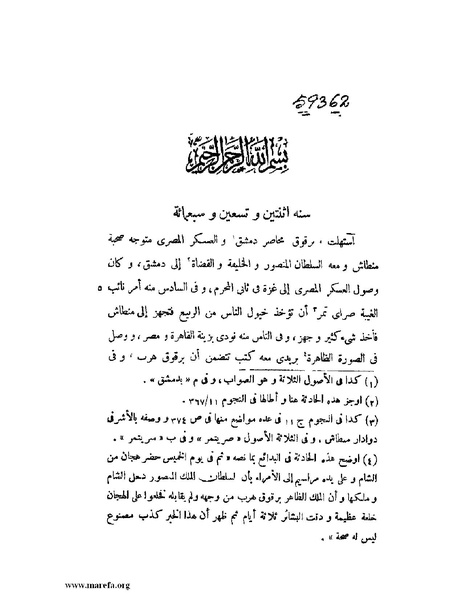 59362
بسم الله الرحمن الرحيم
سنه اثنتين و تسعين و سبعمائة
آستهلت و برقوق محاصر دمشق¹ و العسكر المصرى متوجه صحبة
منطاش و معه السلطان المنصور و الخليفة و القضاة² إلى دمشق، و كان
وصول العسكر المصرى إلى غزة فى ثانى المحرم، و فى السادس منه أمر نائب ٥
الغيبة صراى تمر³ أن تؤخذ خيول الناس من الربيع فتجهز إلى منطاش
فأخذ شىء كثير و جهز، و فى الثامن منه نودى بزينة القاهرة و مصر، و وصل
فى الصورة الظاهرة⁴ بريدى معه كتب تتضمن أن برقوق هرب، و فى
(١) كذا فى الأصول الثلاثة و هو الصواب، و فى م « بدمشق » .
(٢) اوجز هذه الحادثة هنا و أطالها فى النجوم ٣٦٧/١١ .
(٣) كذا فى النجوم ج ١١ فى عده مواضيع منها فى ص ٣٧٤ و وصفه بالأشرفى
دوادار منطاش، و فى الثلاثة الأصول « صريتمر » و فى ب « سريتمر » .
(٤) اوضح هذه الحادثة فى البدائع بما نصه « ثم فى يوم الخميس حضر هجان من
الشام و على يده مراسيم إلى الأمراء بأن السلطان الملك المنصور دخل الشام
و ملكها و أن الملك الظاهر برقوق هرب من وجهه ولم يقابله فخلعوا على الهجان
خلعة عظيمة و دقت البشائر ثلاثة أيام ثم ظهر أن هذا الخبر كذب مصنوع
ليس له صحة » .
www.marefa.org